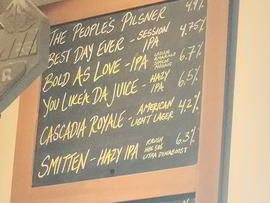 THE PEOPLE'S PILSNER 4.9%
BEST DAY EVER - SESSION IPA 4.75%
BOLD AS LOVE - IPA 6.7%
YOU LIKEA DA JUICE - HAZY IPA 6.5%
CASCADIA ROYALE - AMERICAN LIGHT LAGER 4.2%
SMITTEN - HAZY IPA KRUSH 6.3%